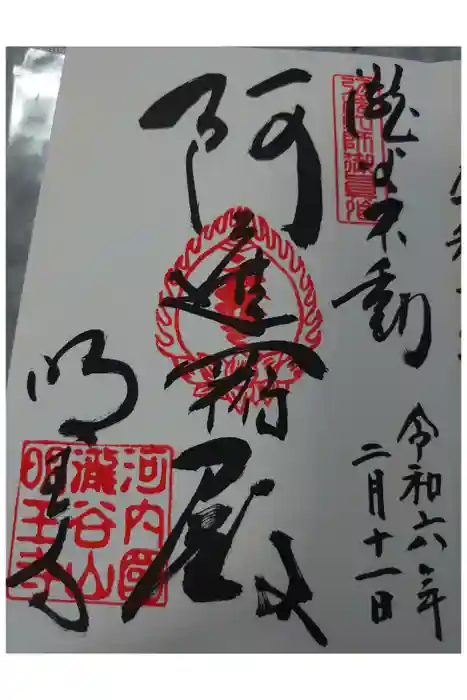 瀧谷不動
令和六年
二月十一日
阿遮殿
明王寺
河内國
瀧谷山
明王寺